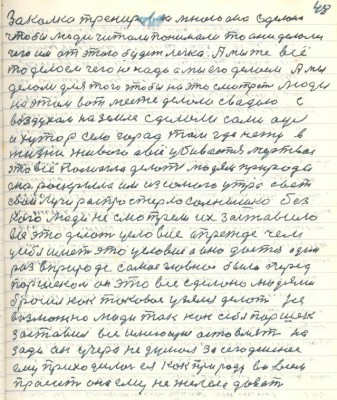 48
Закалка тренировка много она сделано
чтобы люди читали понимали то они делали
чего им от этого будет легка. А мы же всё
то делаем чего не надо а мы его делаем. А мы
делаем для того чтобы на это смотрели люди
на этом вот месте делаем свадьбу с
воздухом на земле сделали сами аул
и хутор село город там где нету в
жизни живого а всё убивается мертвая
это всё помогла делать людям природа
она раскрыла им из самого утра свет
свой лучи распростерло солнышко без
кого люди не смотрели их заставило
это делать условие а прежде чем
иметь это условие а оно дается один
раз в природе самое главное было перед
Паршеком он это все сделано людями
бросил как таковое узялся делать
возможно люди так как себя Паршек
заставил все имеющие оставлять на
зади он учера не думал за сегодняшнее
ему приходилося как природу во всем
просить она ему не жалела давать